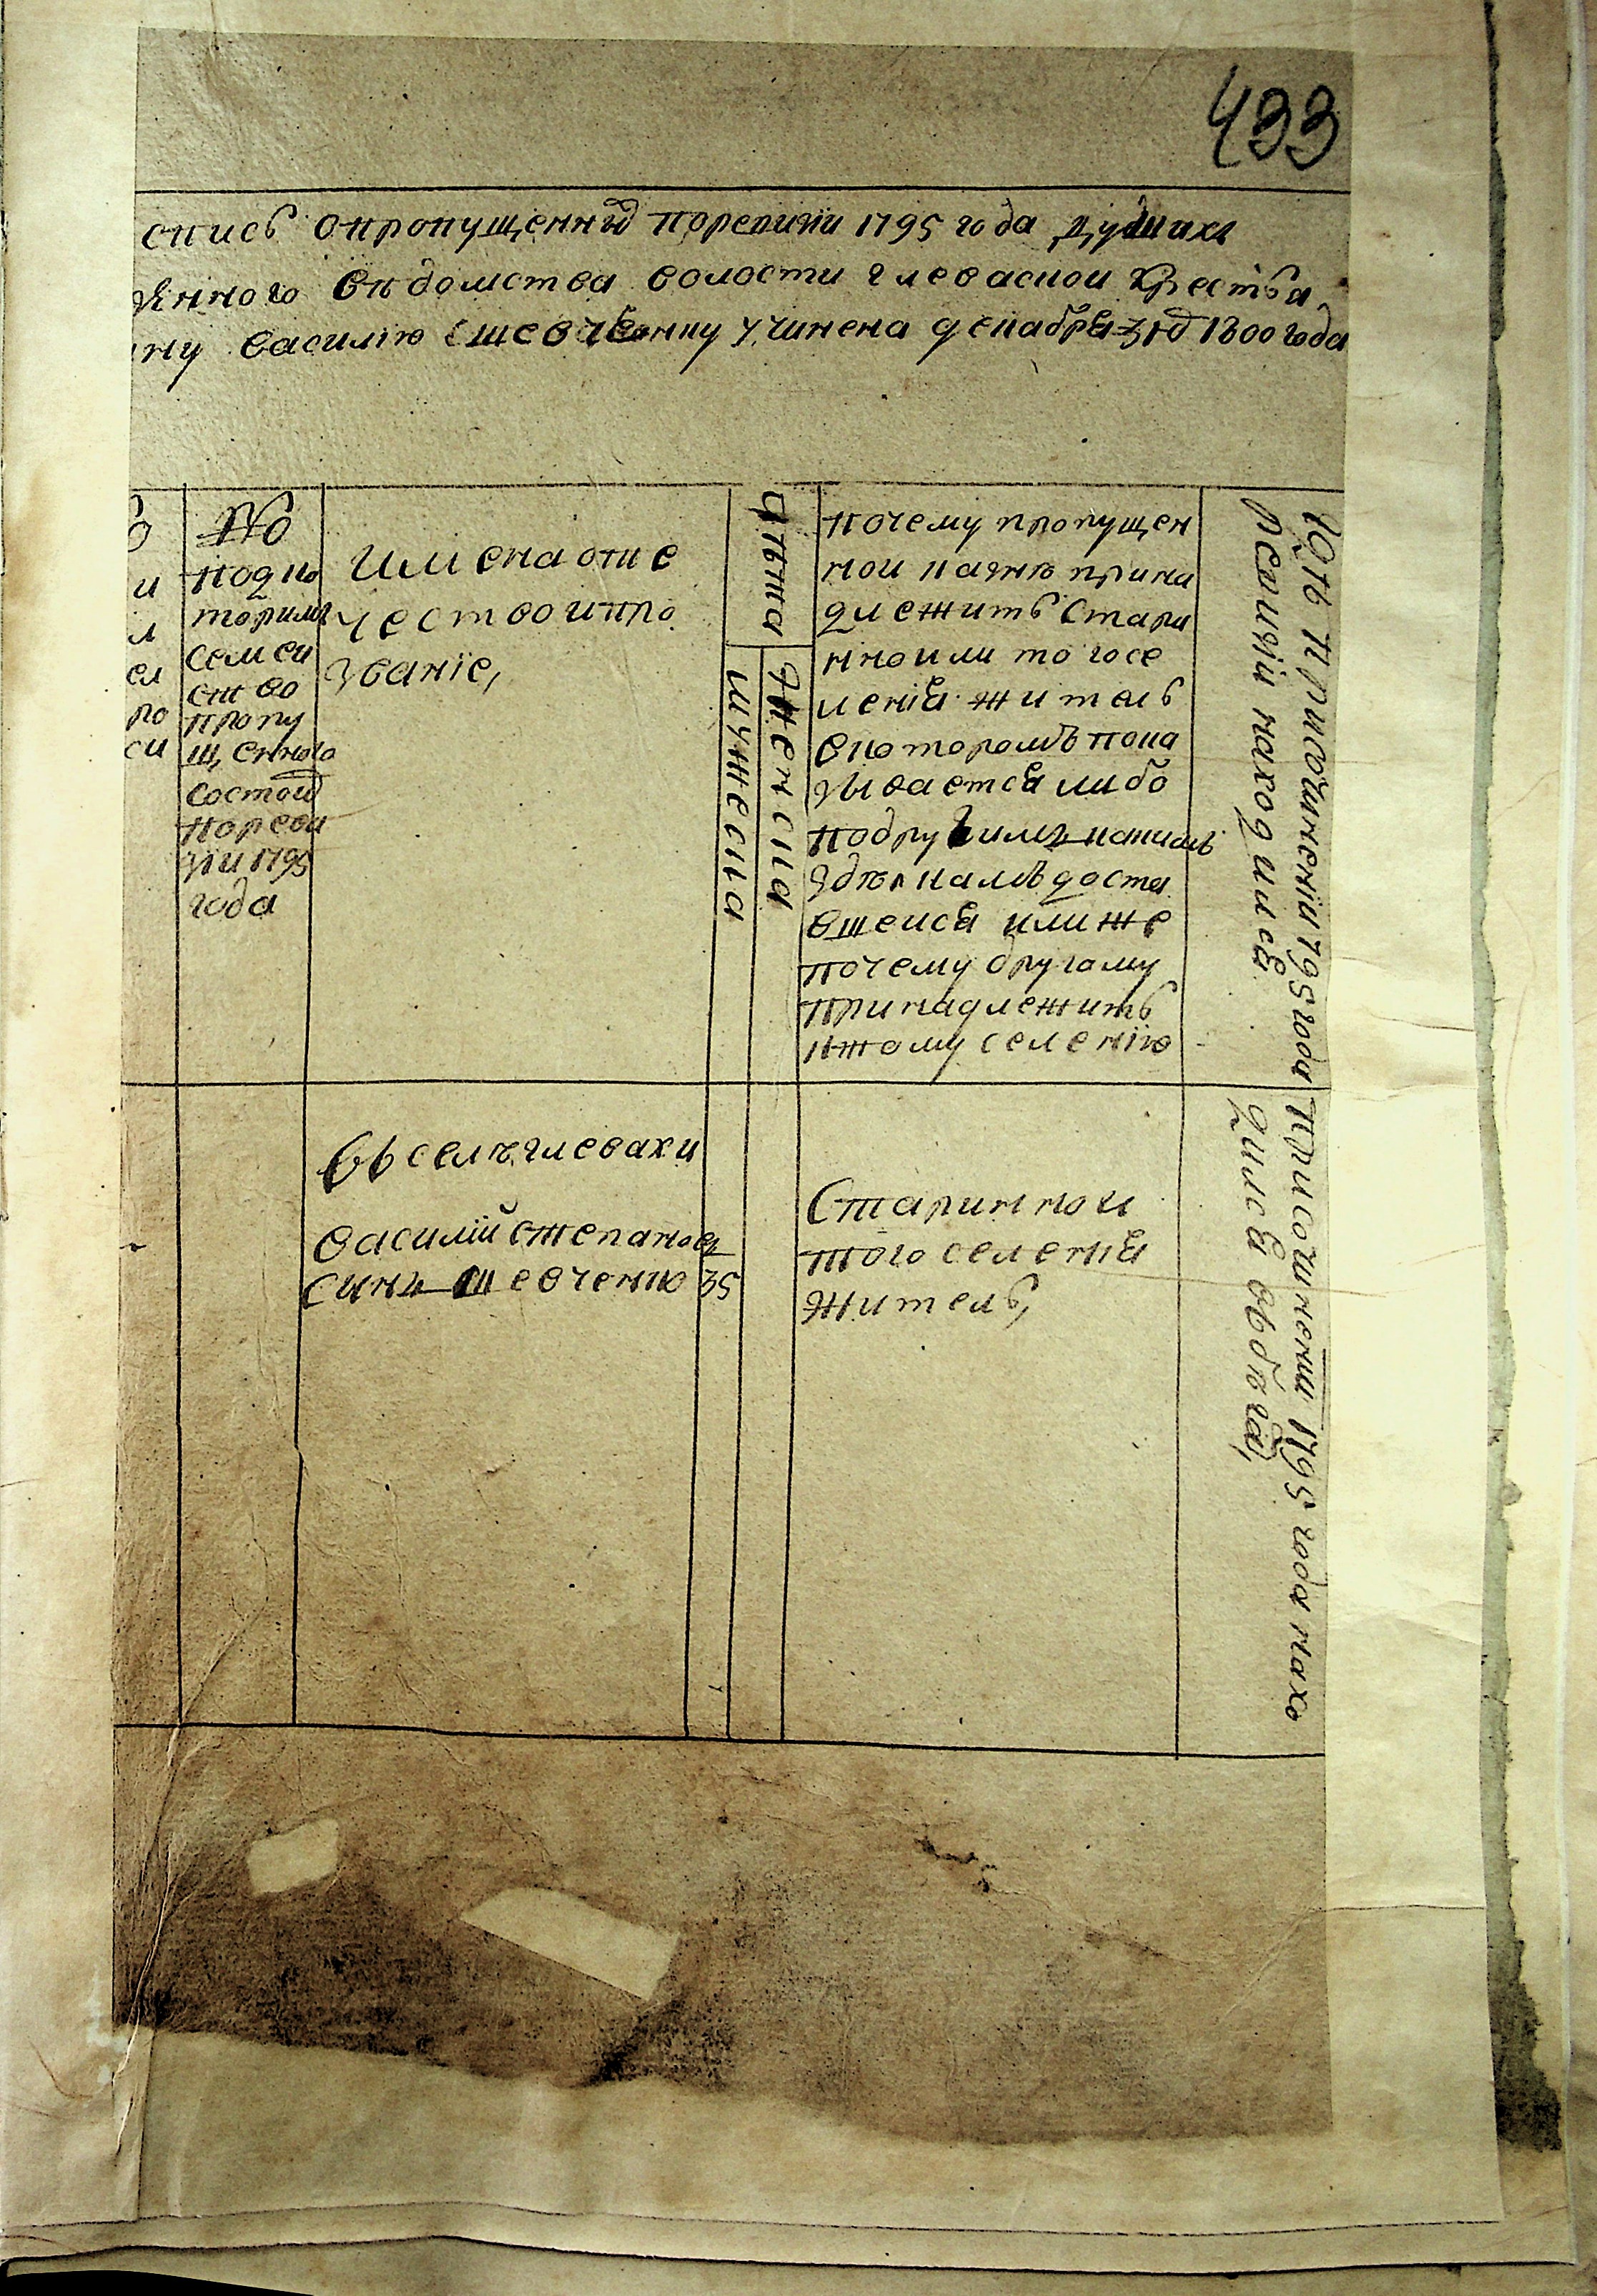 433
спись опропущенной поревизии 1795 года душахъ
ённого вѣдомства волости глеваскои крестья
ину василию шевченку учинена декабря 31д 1800 года
№
подко
торимъ
семеи
ство
пропу
щенного
состои
нореви
зіи 1795
года
и
л
ел
ро
си
имена отче
чество и про
званіе,
лѣта
мужеска
женска
почему пропущен
ной казнѣ прина
длежитъ стари
нно или того се
ленія житель
вкоторомъ пока
зывается либо
подругимъ какимъ
здѣлкамъ доста
вшейся или же
почему другому
принадлежитъ
ктому селенію
Где присочинении 1795 года
ревизіи находился
въ селѣ глевахи
василій степановъ
синъ шевченко 25
Старинной
того селенія
житель,
присочинении 1795 года нахо
дился вбѣгах,